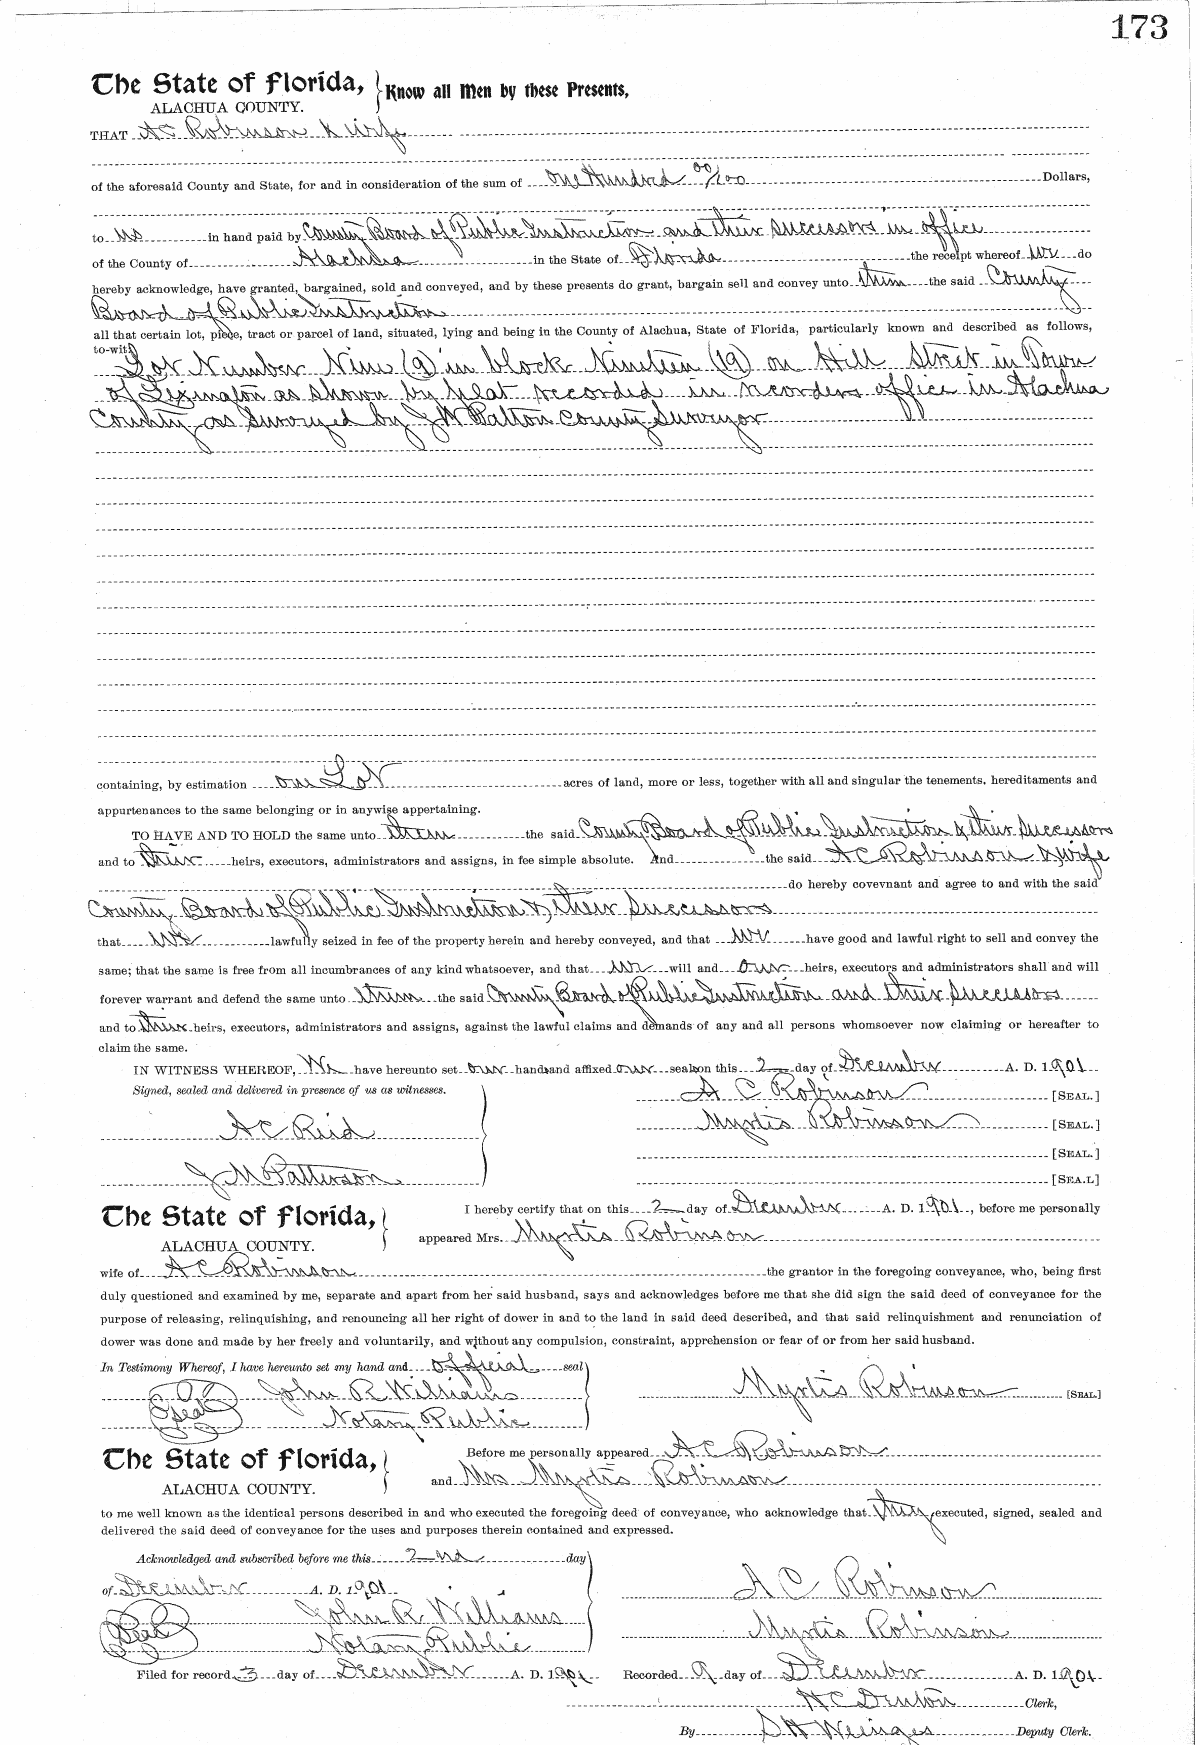 173
The State of Florida, } Know all Men by these Presents,
ALACHUA COUNTY.
THAT A C Robinson & Wife
of the aforesaid County and State, for and in consideration of the sum of One Hundred 00/100 Dollars,
to us in hand paid by County Board of Public Instruction and their successors in office
of the County of Alachua in the State of Florida the receipt whereof We do
hereby acknowledge, have granted, bargained, sold and conveyed, and by these presents do grant, bargain sell and convey unto them the said County
Board of Public Instruction
all that certain lot, piece, tract or parcel of land, situated, lying and being in the County of Alachua, State of Florida, particularly known and described as follows,
to-wit: Lot Number Nine (9) in block Nineteen (19) on Hill Street in Town
of Lexington as shown by plat recorded in recorders office in Alachua
County as Surveyed by J W Patton County Surveyor
containing, by estimation one Lot acres of land, more or less, together with all and singular the tenements, hereditaments and
appurtenances to the same belonging or in anywise appertaining.
TO HAVE AND TO HOLD the same unto them the said County Board of Public Instruction & their Successors
and to their heirs, executors, administrators and assigns, in fee simple absolute. And the said A C Robinson & wife
do hereby covevnant and agree to and with the said
County Board of Public Instruction & their Successors
that We lawfully seized in fee of the property herein and hereby conveyed, and that We have good and lawful right to sell and convey the
same; that the same is free from all incumbrances of any kind whatsoever, and that We will and our heirs, executors and administrators shall and will
forever warrant and defend the same unto them the said County Board of Public Instruction and their Successors
and to their heirs, executors, administrators and assigns, against the lawful claims and demands of any and all persons whomsoever now claiming or hereafter to
claim the same.
IN WITNESS WHEREOF, We have hereunto set our hands and affixed our seals on this 2 day of December A. D. 1901
Signed, sealed and delivered in presence of us as witnesses.
A C Robinson [SEAL.]
Myrtis Robinson [SEAL.]
A C Reid
[SEAL.]
J M Patterson
[SEA.L]
The State of Florida, } I hereby certify that on this 2 day of December A. D. 1901, before me personally
ALACHUA COUNTY. appeared Mrs. Myrtis Robinson
wife of A C Robinson the grantor in the foregoing conveyance, who, being first
duly questioned and examined by me, separate and apart from her said husband, says and acknowledges before me that she did sign the said deed of conveyance for the
purpose of releasing, relinquishing, and renouncing all her right of dower in and to the land in said deed described, and that said relinquishment and renunciation of
dower was done and made by her freely and voluntarily, and without any compulsion, constraint, apprehension or fear of or from her said husband.
In Testimony Whereof, I have hereunto set my hand and official seal
Seal John R Williams Myrtis Robinson [SEAL]
Notary Public
The State of Florida, } Before me personally appeared A C Robinson
ALACHUA COUNTY. and Mrs Myrtis Robinson
to me well known as the identical persons described in and who executed the foregoing deed of conveyance, who acknowledge that they executed, signed, sealed and
delivered the said deed of conveyance for the uses and purposes therein contained and expressed.
Acknowledged and subscribed before me this 2nd day
of December A. D. 1901 A C Robinson
Seal John R. Williams Myrtis Robinson
Notary Public
Filed for record 3 day of December A. D. 1901 Recorded 9 day of December A. D. 1901
H C Denton Clerk,
By S H Wienges Deputy Clerk.